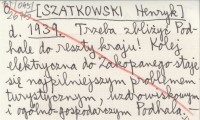 [SZATKOWSKI Henryk]
d. 1939. Trzeba zbliżyć Pod-
hale do reszty kraju! Kolej
elektryczna do Zakopanego staje
się najpilniejszym problemem
turystycznym, uzdrowiskowym
i ogólno-gospodarczym Podhala.